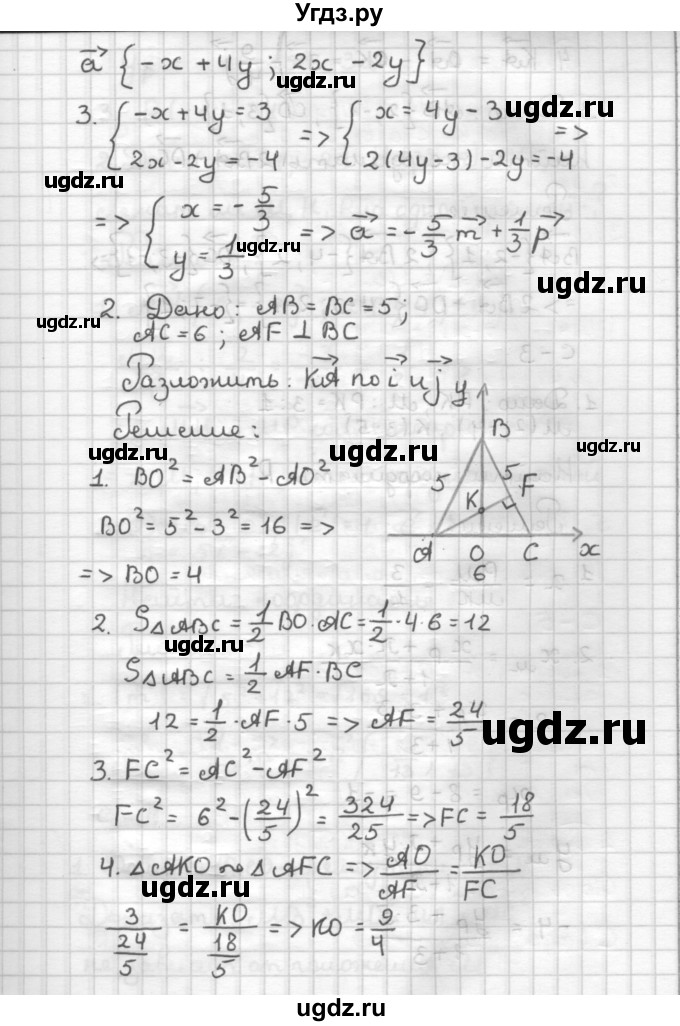 Угдз.ру
a⃗ {-x + 4y ; 2x - 2y}
ugdz.ru
3. { -x + 4y = 3 => { x = 4y - 3 =>
{ 2x - 2y = -4 { 2(4y-3) - 2y = -4
ugdz.ru
ugdz.ru
=> { x = -5/3 => a⃗ = -5/3 m⃗ + 1/3 p⃗
{ y = 1/3
ugdz.ru
2. Дано: AB = BC = 5;
ugdz.ru
AC = 6; AF ⊥ BC
ugdz.ru
Разложить: KA⃗ по i⃗ и j⃗
y
Решение:
B
ugdz.ru
ugdz.ru
1. BO² = AB² - AO²
5
5
F
K
BO² = 5² - 3² = 16 =>
A O C x
6
=> BO = 4
2. S△ABC = 1/2 BO · AC = 1/2 · 4 · 6 = 12
ugdz.ru
S△ABC = 1/2 AF · BC
12 = 1/2 · AF · 5 => AF = 24/5
ugdz.ru
3. FC² = AC² - AF²
FC² = 6² - (24/5)² = 324/25 => FC = 18/5
4. △AKO ~ △AFC => AO/AF = KO/FC
ugdz.ru
3/(24/5) = KO/(18/5) => KO = 9/4
ugdz.ru
ugdz.ru